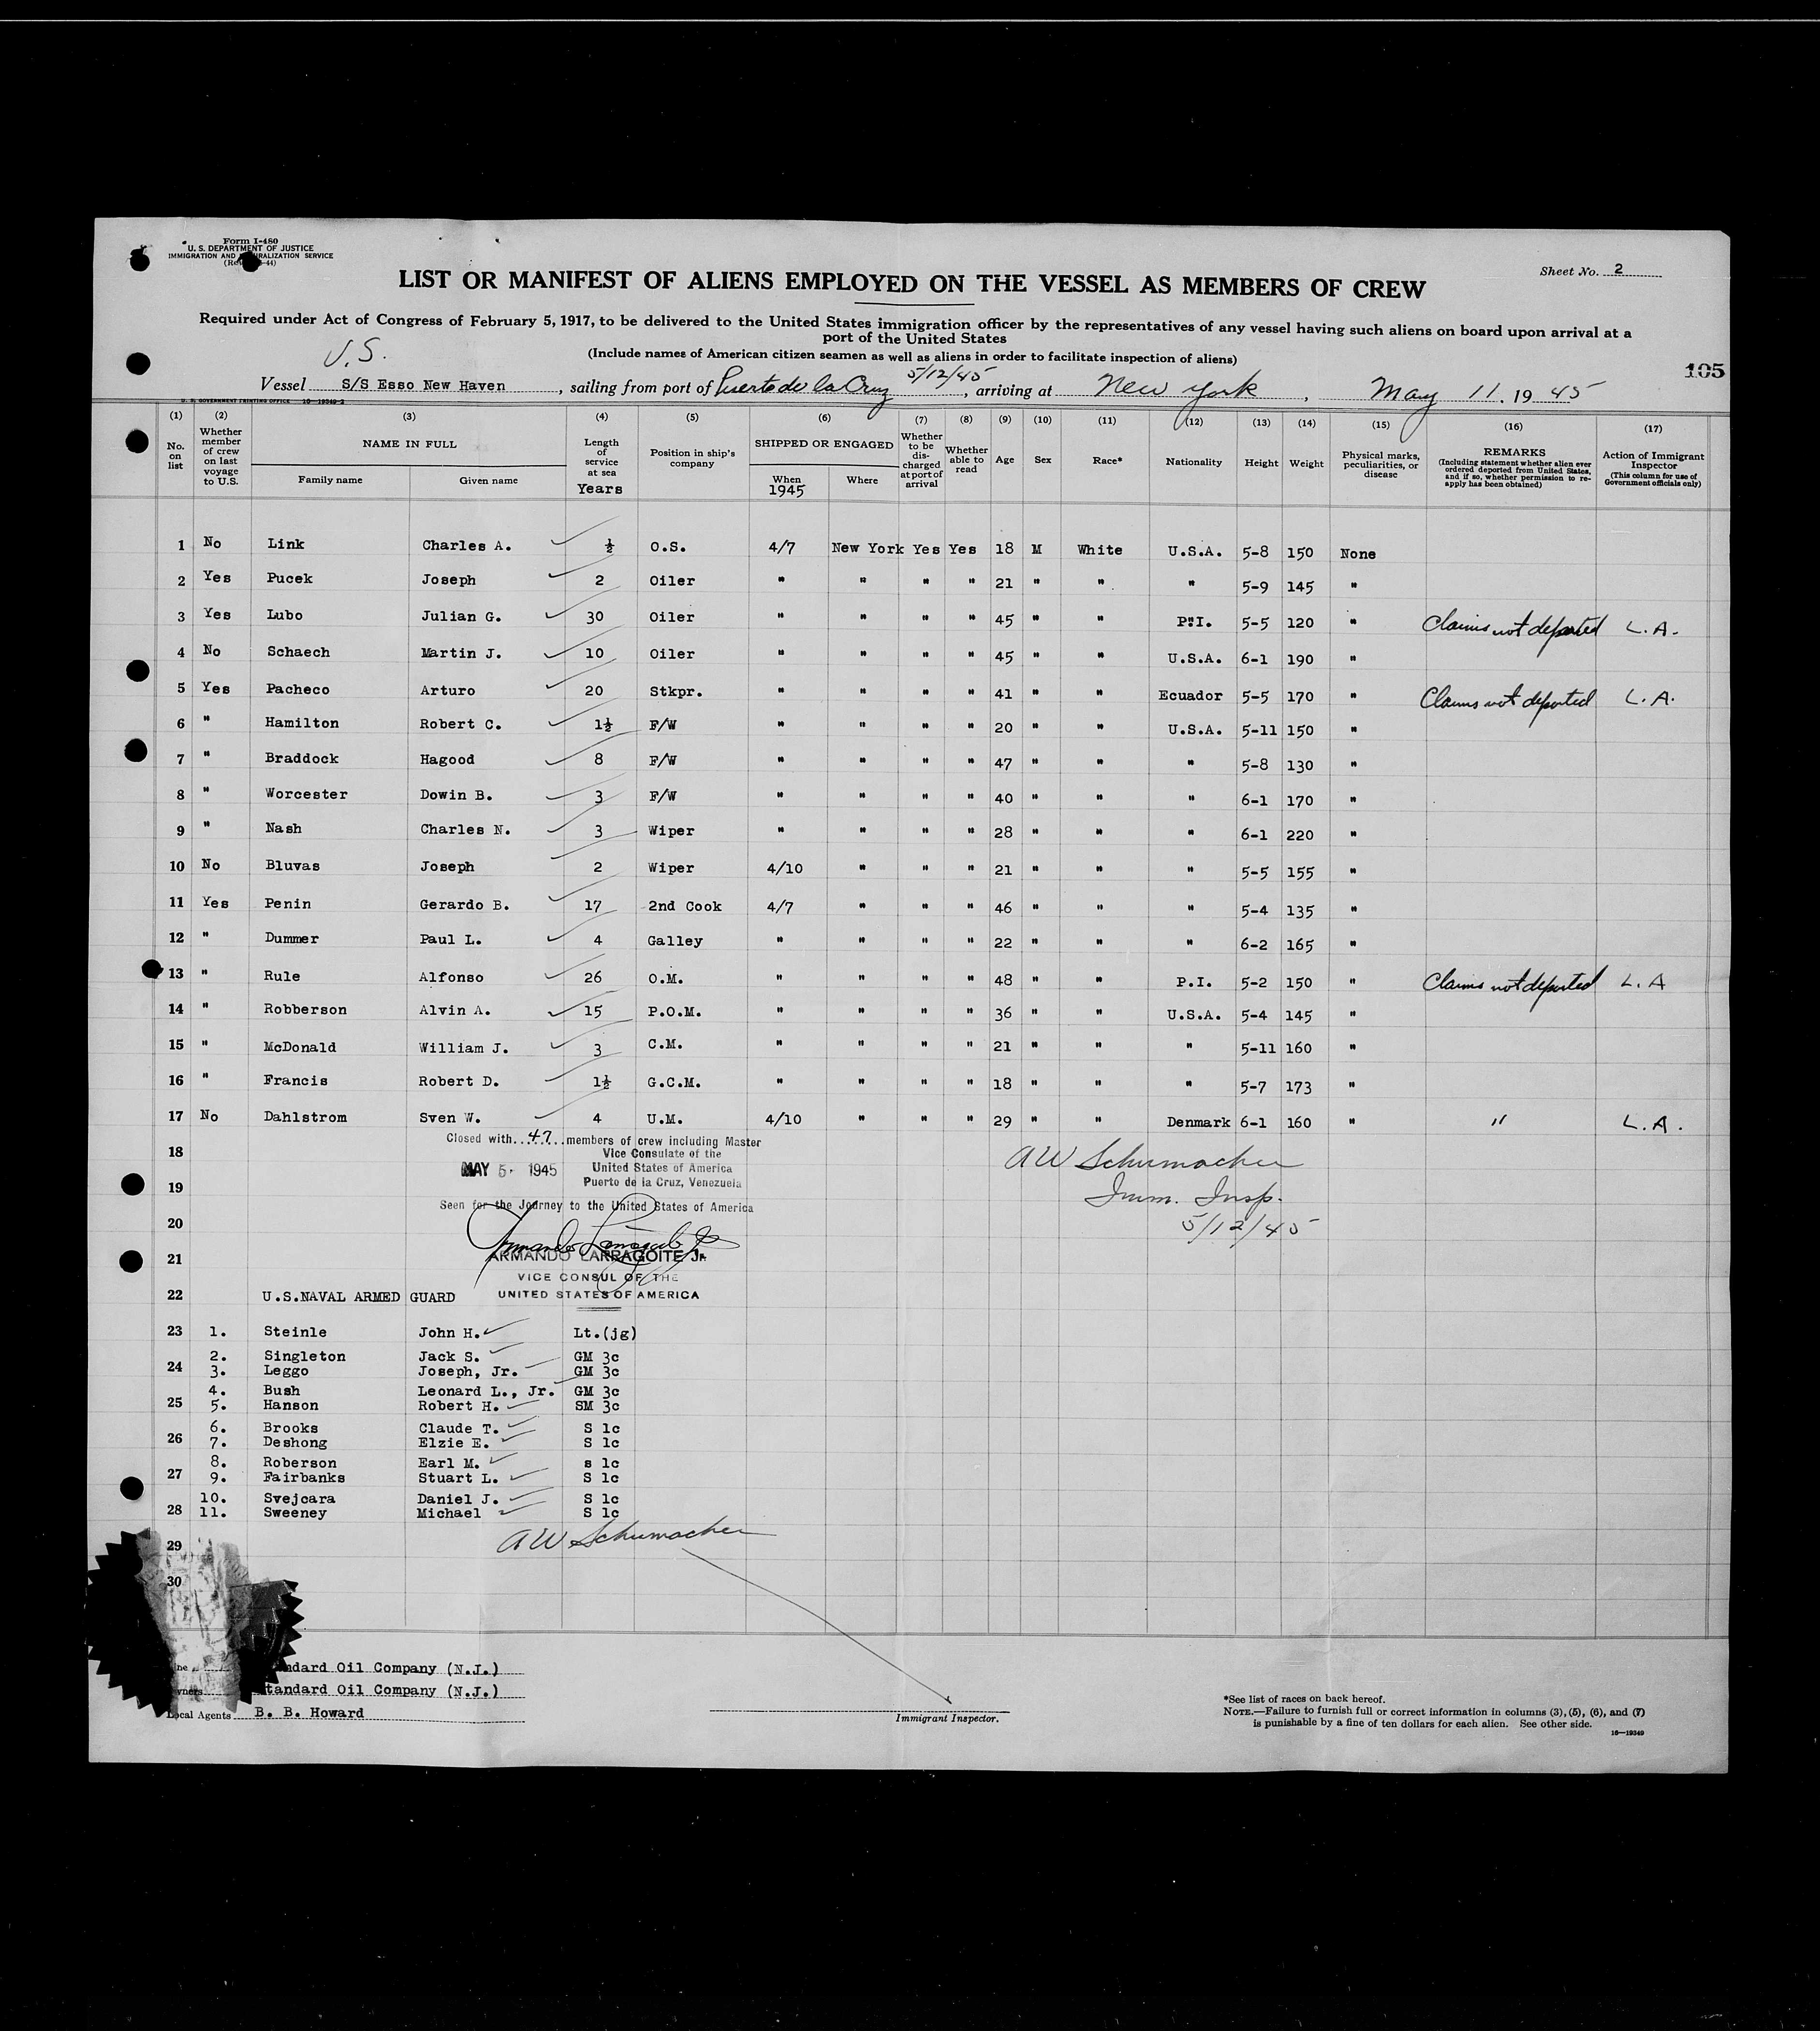 Form I-480
U. S. DEPARTMENT OF JUSTICE
IMMIGRATION AND NATURALIZATION SERVICE
Sheet No. 2
LIST OR MANIFEST OF ALIENS EMPLOYED ON THE VESSEL AS MEMBERS OF CREW
Required under Act of Congress of February 5, 1917, to be delivered to the United States immigration officer by the representatives of any vessel having such aliens on board upon arrival at a
port of the United States
(Include names of American citizen seamen as well as aliens in order to facilitate inspection of aliens)
105
U.S.
5/12/45
Vessel S/S Esso New Haven, sailing from port of Puerto de la Cruz, arriving at New York, May 11. 19 45
U. S. GOVERNMENT PRINTING OFFICE 16—19349-2
(1) (2) (3) (4) (5) (6) (7) (8) (9) (10) (11) (12) (13) (14) (15) (16) (17)
No. on list
Whether member of crew on last voyage to U.S.
NAME IN FULL
Family name Given name
Length of service at sea
Years
Position in ship's company
SHIPPED OR ENGAGED
When 1945 Where
Whether to be discharged at port of arrival
Whether able to read
Age Sex Race* Nationality Height Weight
Physical marks, peculiarities, or disease
REMARKS
(Including statement whether alien ever ordered deported from United States, and if so, whether permission to reapply has been obtained)
Action of Immigrant Inspector
(This column for use of Government officials only)
1 No Link Charles A. ½ O.S. 4/7 New York Yes Yes 18 M White U.S.A. 5-8 150 None
2 Yes Pucek Joseph 2 Oiler " " " " 21 " " " 5-9 145 "
3 Yes Lubo Julian G. 30 Oiler " " " " 45 " " P.I. 5-5 120 " Claims not deported L.A.
4 No Schaech Martin J. 10 Oiler " " " " 45 " " U.S.A. 6-1 190 "
5 Yes Pacheco Arturo 20 Stkpr. " " " " 41 " " Ecuador 5-5 170 " Claims not deported L.A.
6 " Hamilton Robert C. 1½ F/W " " " " 20 " " U.S.A. 5-11 150 "
7 " Braddock Hagood 8 F/W " " " " 47 " " " 5-8 130 "
8 " Worcester Dowin B. 3 F/W " " " " 40 " " " 6-1 170 "
9 " Nash Charles N. 3 Wiper " " " " 28 " " " 6-1 220 "
10 No Bluvas Joseph 2 Wiper 4/10 " " " 21 " " " 5-5 155 "
11 Yes Penin Gerardo B. 17 2nd Cook 4/7 " " " 46 " " " 5-4 135 "
12 " Dummer Paul L. 4 Galley " " " " 22 " " " 6-2 165 "
13 " Rule Alfonso 26 O.M. " " " " 48 " " P.I. 5-2 150 " Claims not deported L.A
14 " Robberson Alvin A. 15 P.O.M. " " " " 36 " " U.S.A. 5-4 145 "
15 " McDonald William J. 3 C.M. " " " " 21 " " " 5-11 160 "
16 " Francis Robert D. 1½ G.C.M. " " " " 18 " " " 5-7 173 "
17 No Dahlstrom Sven W. 4 U.M. 4/10 " " " 29 " " Denmark 6-1 160 " " L.A.
Closed with 47 members of crew including Master
18 Vice Consulate of the
MAY 5 1945 United States of America
19 Puerto de la Cruz, Venezuela
AW Schumacher
Imm. Insp.
5/12/45
Seen for the Journey to the United States of America
20
21 ARMANDO LARRAGOITE Jr.
VICE CONSUL OF THE
UNITED STATES OF AMERICA
22 U.S.NAVAL ARMED GUARD
23 1. Steinle John H. Lt.(jg)
2. Singleton Jack S. GM 3c
24 3. Leggo Joseph, Jr. GM 3c
4. Bush Leonard L., Jr. GM 3c
25 5. Hanson Robert H. SM 3c
6. Brooks Claude T. S 1c
26 7. Deshong Elzie E. S 1c
8. Roberson Earl M. s 1c
27 9. Fairbanks Stuart L. S 1c
10. Svejcara Daniel J. S 1c
28 11. Sweeney Michael S 1c
AW Schumacher
29
30
ndard Oil Company (N.J.)
wners tandard Oil Company (N.J.)
Local Agents B. B. Howard
Immigrant Inspector.
*See list of races on back hereof.
NOTE.—Failure to furnish full or correct information in columns (3), (5), (6), and (7)
is punishable by a fine of ten dollars for each alien. See other side.
16—19349